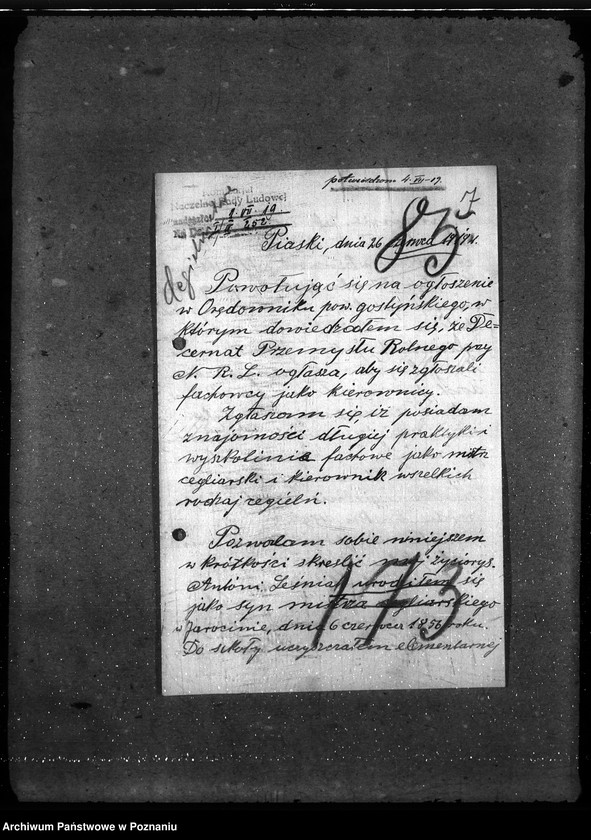 potwierdzono 4.VII-19.
7
Naczelnej Rady Ludowej
1. VII. 19
83
Piaski, dnia 26 czerwca 1919 r.
Powołując się na ogłoszenie
w Orędowniku pow. gostyńskiego, w
którym dowiedziałem się, że De=
cernat Przemysłu Rolnego przy
N. R. L. ogłasza, aby się zgłoszali
fachowcy jako kierownicy.
Zgłaszam się, iż posiadam
znajomości długiej praktyki i
wyszkolinia fachowe jako mistrz
cegliarski i kierownik wszelkich
rodzaj cegielń.
Pozwalam sobie niniejszem
w krótkości skreślić mój życiorys.
Antoni Leśniak urodziłem się
jako syn mistrza cegliarskiego
w Jarocinie, dnia 6 czerwca 1856 roku.
Do szkoły uczęszczałem elementarnej
173
Archiwum Państwowe w Poznaniu